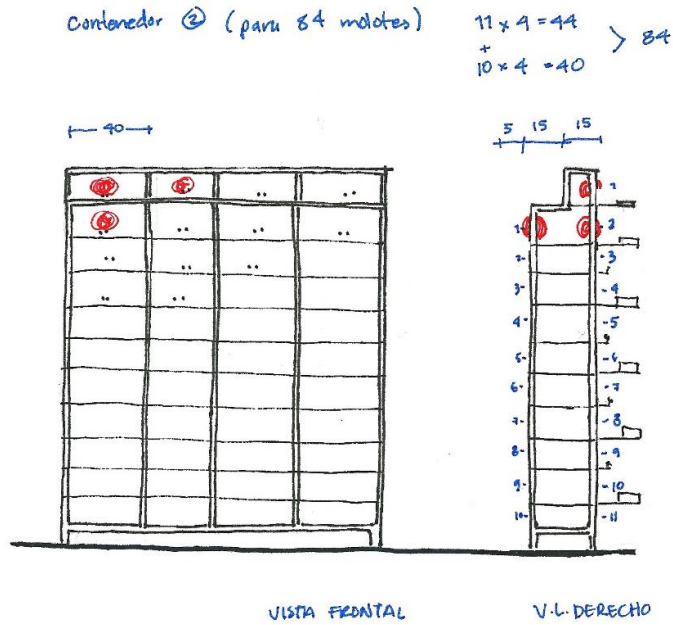 Contenedor ② (para 84 molotes)
11 x 4 = 44
+
10 x 4 = 40
> 84
40
5 15 15
1
1 2
2 3
3 4
4 5
5 6
6 7
7 8
8 9
9 10
10 11
VISTA FRONTAL
V.L. DERECHO